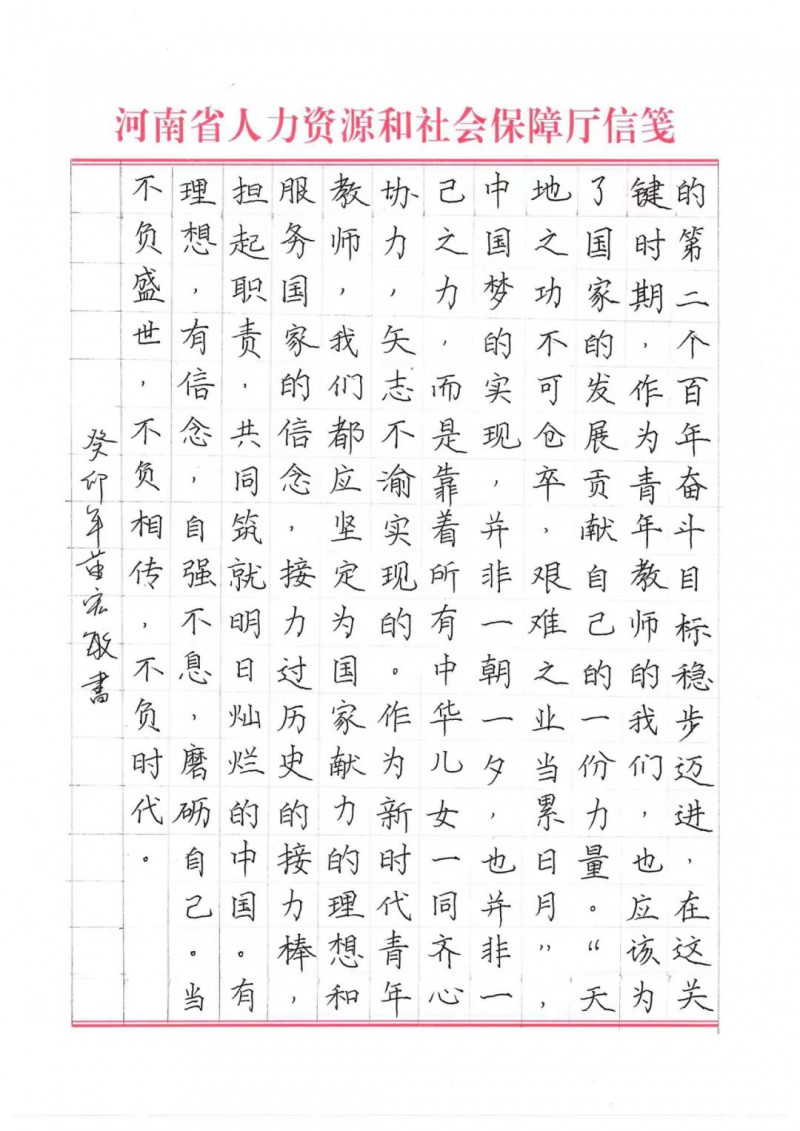 河南省人力资源和社会保障厅信笺
的第二个百年奋斗目标稳步迈进，在这关
键时期，作为青年教师的我们，也应该为
了国家的发展贡献自己的一份力量。“天
地之功不可仓卒，艰难之业当累日月”，
中国梦的实现，并非一朝一夕，也并非一
己之力，而是靠着所有中华儿女一同齐心
协力，矢志不渝实现的。作为新时代青年
教师，我们都应坚定为国家献力的理想和
服务国家的信念，接力过历史的接力棒，
担起职责，共同筑就明日灿烂的中国。有
理想，有信念，自强不息，磨砺自己。当
不负盛世，不负相传，不负时代。
癸卯年苗宏敏书